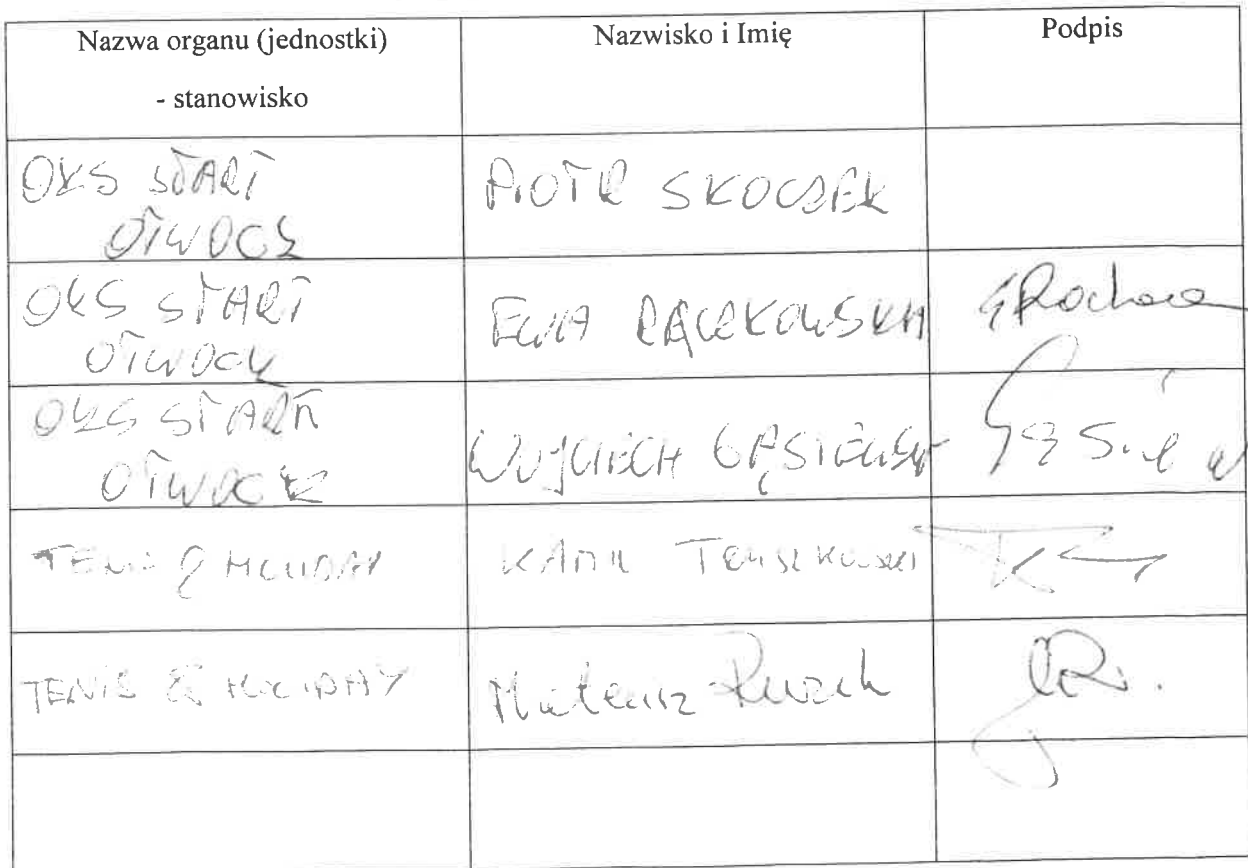 Nazwa organu (jednostki)
- stanowisko
Nazwisko i Imię
Podpis
OKS START
OTWOCK
PIOTR SKOCZEK
OKS START
OTWOCK
EWA RĄCZKOWSKA
OKS START
OTWOCK
WOJCIECH
TENIS & HOLIDAY
KAMIL
TENIS & HOLIDAY
Mateusz